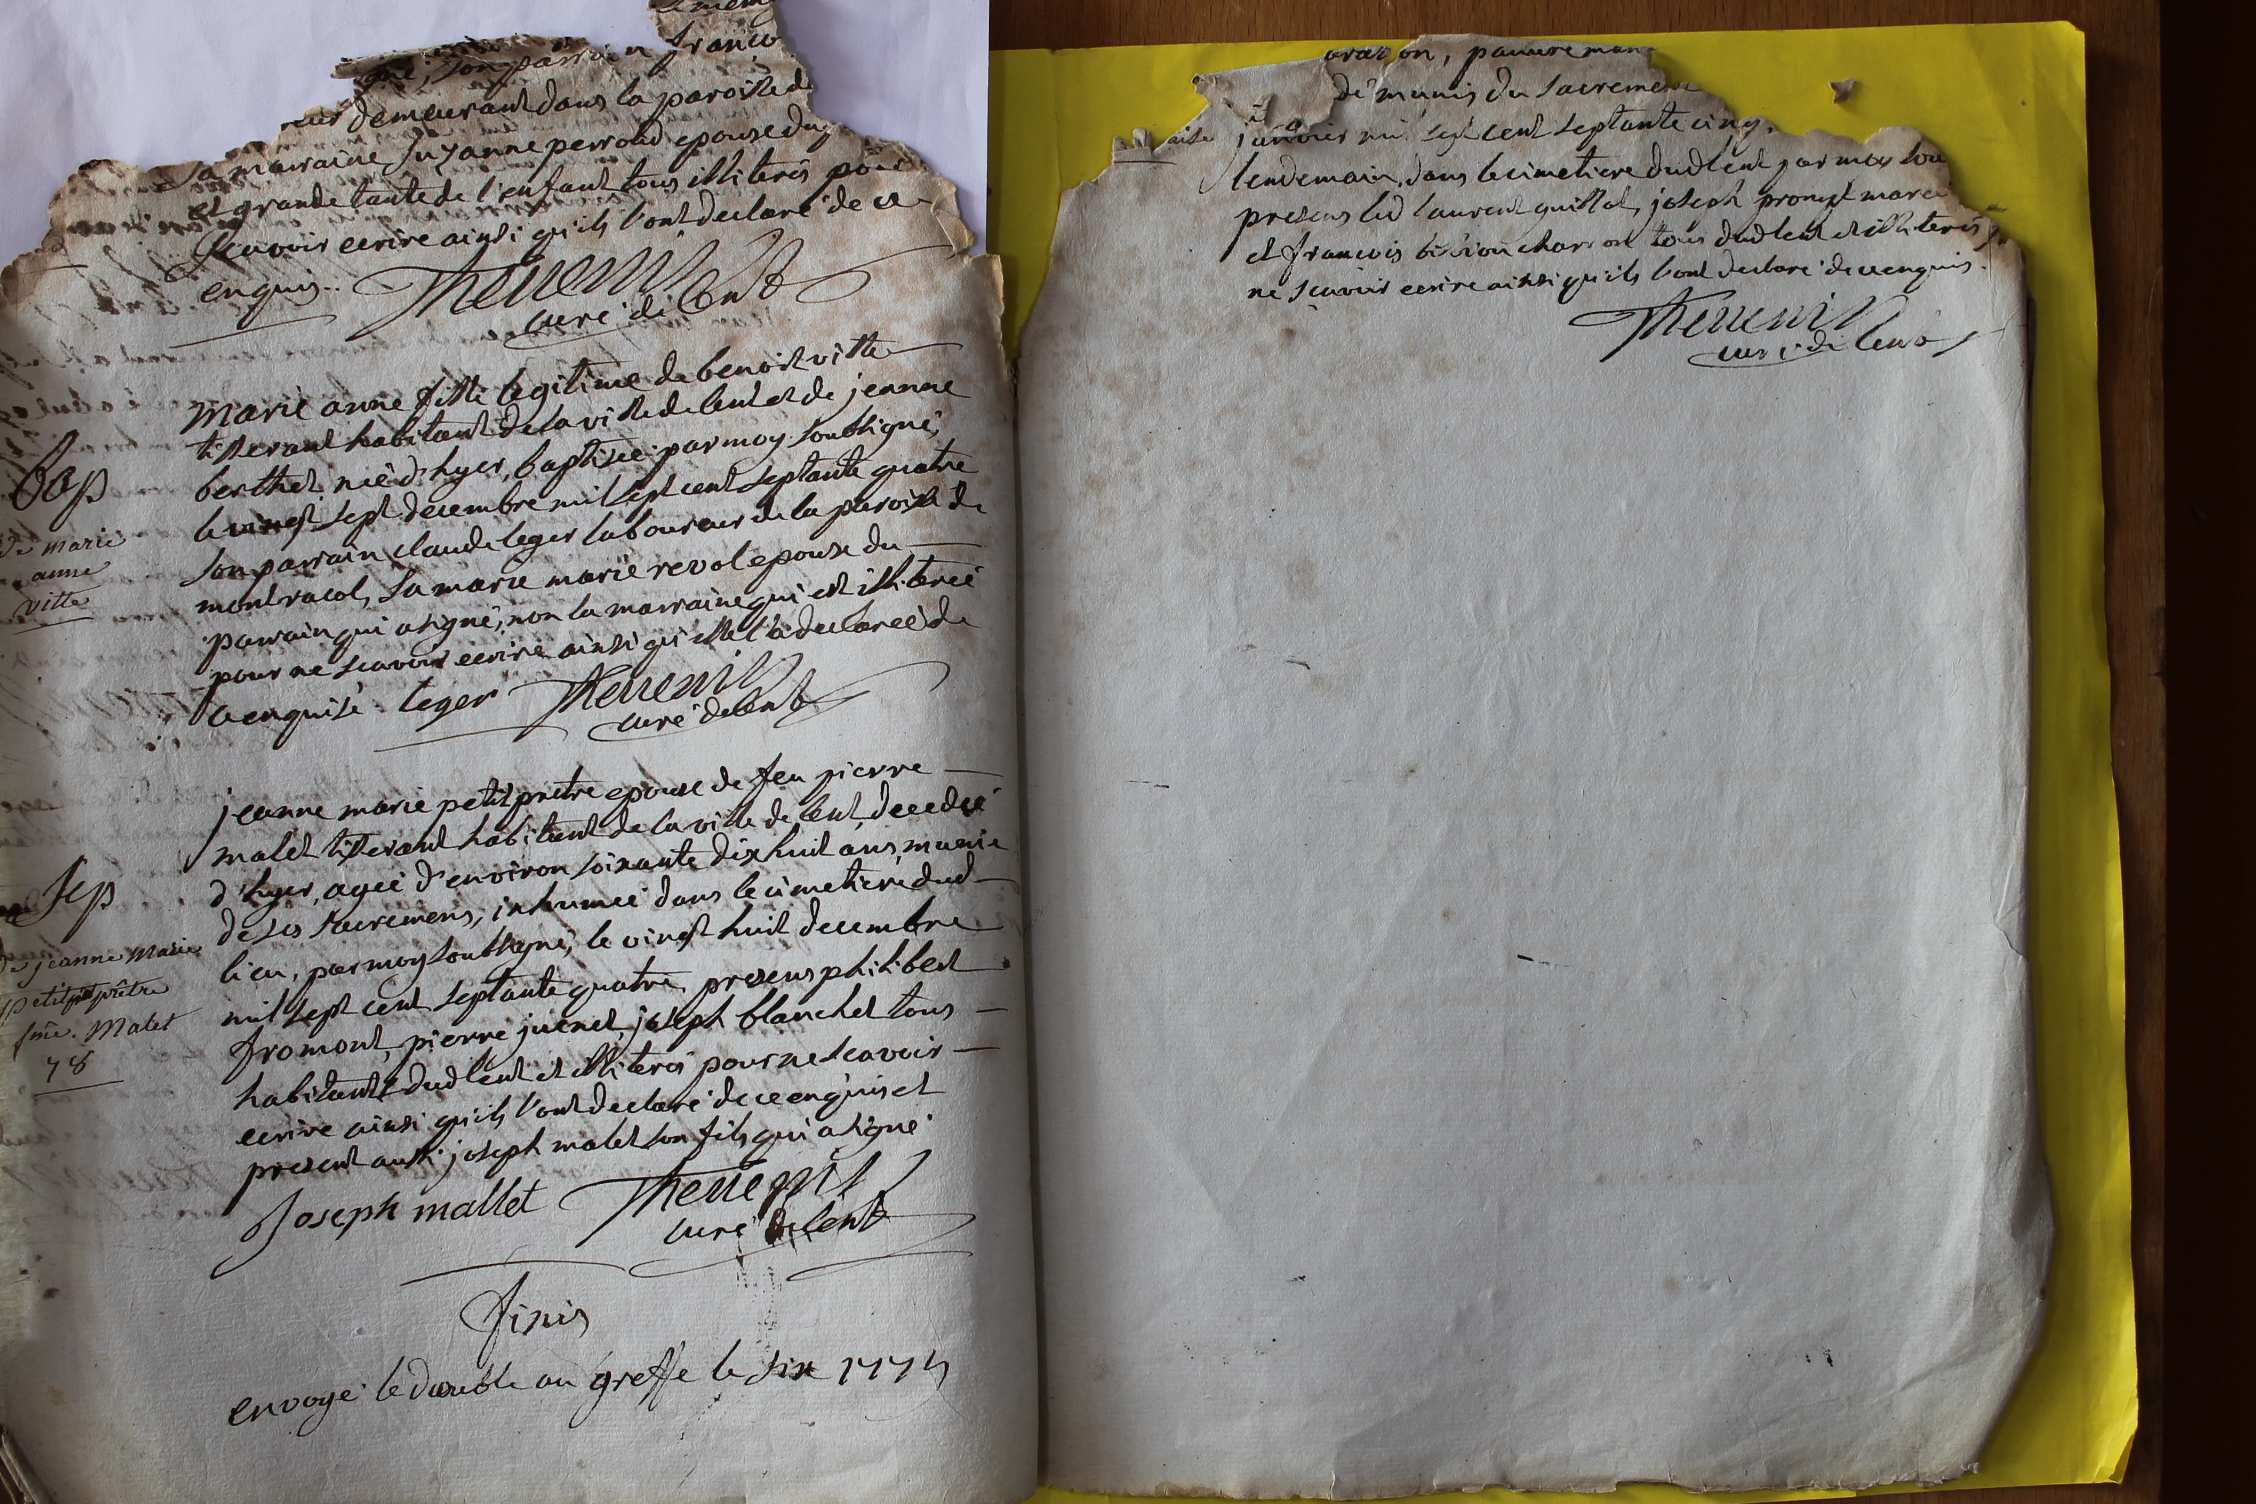 son parrain franco
eur demeurant dans la paroisse de
sa marraine Suzanne perroud epouse dug
et grande tante de l'enfant tous illiterés pour
scavoir ecrire ainsi qu'ils l'ont declaré de ce
enquis.. Thevenin
curé de lent
Bap
de marie
anne
vitte
marie anne fille legitime de benoist vitte
tisserant habitant de la ville de lent et de jeanne
berthet, neé d'hyer, baptisée par moy soussigné,
le vingt sept decembre mil sept cent septante quatre
son parrain claude leger laboureur de la paroisse de
montracol, sa marie marie revol epouse du
parrain qui a signé, non la marraine qui est illiterée
pour ne scavoir ecrire ainsi qu'elle l'a declareé de
ce enquise. leger Thevenin
curé de lent
Sep
de jeanne Marie
petit prêtre
fme. Malet
78
jeanne marie petitpretre epouse de feu pierre
malet tisserant habitant de la ville de lent, decedeé
d'hyer, ageé d'environ soixante dix huit ans, munie
de ses sacremens, inhumeé dans le cimetiere dud
lieu, par moy soussigné, le vingt huit decembre
mil sept cent septante quatre, presens philibert
fromont, pierre juenet, joseph blanchet tous
habitants dud lent et illiterés pour ne scavoir
ecrire ainsi qu'ils l'ont declaré de ce enquis et
present aussi joseph malet son fils qui a signé
Joseph mallet Thevenin
curé de lent
finis
envoyé le double au greffe le six 1775
on, pauvre man
de munis du sacreme
janvier mil sept cent septante cinq,
lendemain, dans le cimetiere dud lent par moy sou
presens led laurent guillot, joseph prompt mare
et francois charron tous dud lent et illiterés
ne scavoir ecrire ainsi qu'ils l'ont declaré de ce enquis.
Thevenin
curé de lent